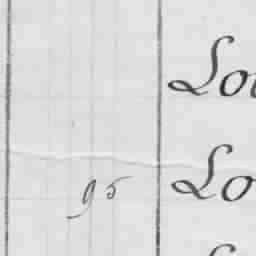 Lo
95 Lo